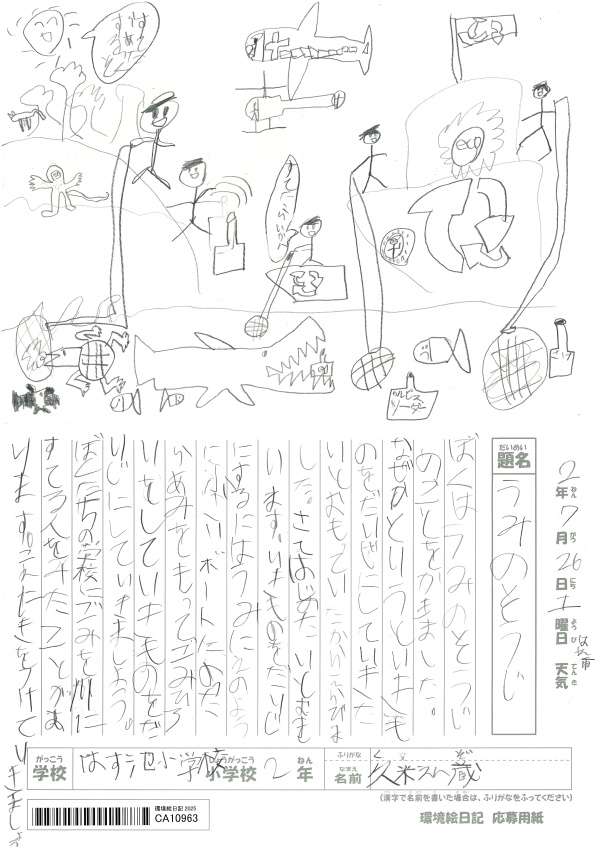 すてるのはやめろ
eco
すてないでくれ
カルピスソーダー
2年7月26日土曜日 天気 はれ
ねん がつ にち よう び てん き
だいめい
題名 うみのそうじ
ぼくはうみのそうじ
のことをかきました。
なぜかというといきも
のをだいじにしていきた
いとおもっていたから
した。さ
います。いきものをだいじ
にするにはうみにそのよう
にボートにのった
あみをもってごみひろ
いをしていきものをだ
いじにしていきましょう。
ぼくたちの学校にごみを川に
すてる人をみたことがあ
ります。きをつけて
いきましょう
がっこう
学校 はす池小学校
しょうがっこう
小学校 2 ねん 年
ふりがな く ぞう
なまえ
名前 久米 蔵
(漢字で名前を書いた場合は、ふりがなをふってください)
環境絵日記 2025
CA10963
環境絵日記 応募用紙